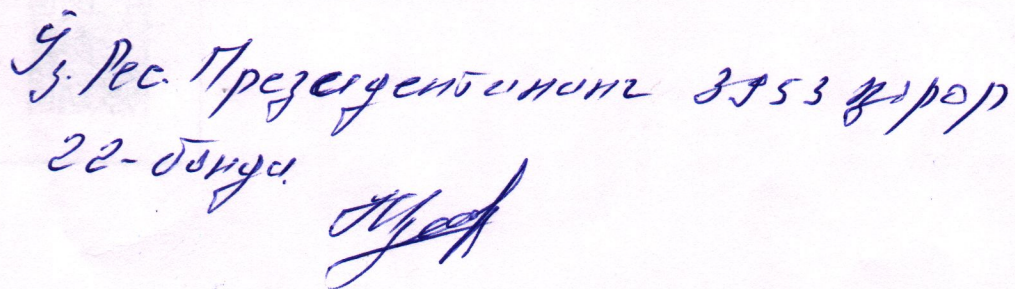 Ўз. Рес. Президентининг 3953 қарор
22-банди.